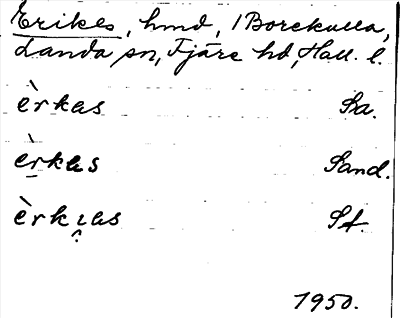 Erikes, hmd, / Borekulla,
Landa sn, Fjäre hd, Hall. l.
èrkas Sa.
èrkas Sand.
èrkıas St.
1950.